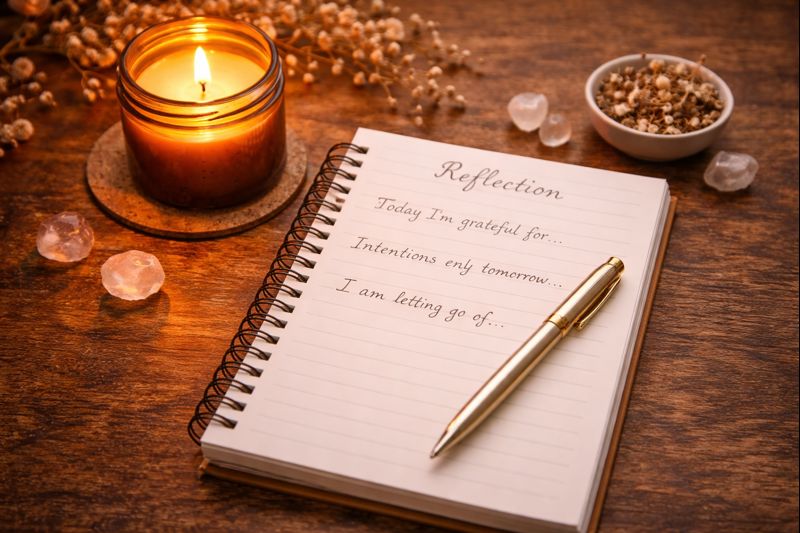 Reflection
Today I'm grateful for...
Intentions enly tomorrow...
I am letting go of...